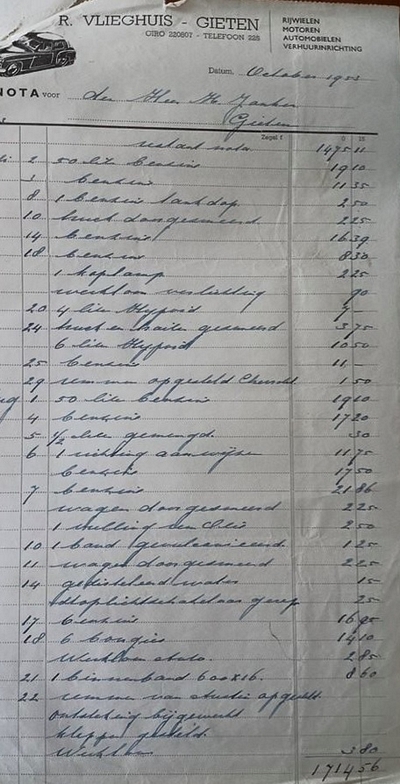 R. VLIEGHUIS - GIETEN
GIRO 220807 - TELEFOON 228
RIJWIELEN
MOTOREN
AUTOMOBIELEN
VERHUURINRICHTING
Datum, October 1953
NOTA voor den Heer H.
Gieten
Zegel f
restant nota 1475 11
2 50 liter benzine 19 10
3 benzine 11 35
8 1 benzine tankdop 2 50
10 truck doorgesmeerd 2 25
14 benzine 16 39
18 benzine 8 30
1 koplamp 2 25
werkloon verlichting 90
20 4 liter Hypoid 7 -
24 truck en trailer gesmeerd 3 75
6 liter Hypoid 10 50
25 benzine 11 -
29 remmen opgesteld Chevrolet 1 50
1 50 liter benzine 19 10
4 benzine 17 20
5 1/2 liter gemengd. 30
6 1 richting aanwijzer 11 75
benzine 17 50
7 benzine 21 86
wagen doorgesmeerd 2 25
1 vulling 2 50
10 1 band gevulcaniseerd 1 25
11 wagen doorgesmeerd 2 25
14 gedistileerd water 15
25
17 benzine 16 95
18 6 bougies 14 10
Werkloon 2 85
21 1 binnenband 600x16. 8 60
22 remmen van opgesteld
ontsteking bijgewerkt
kleppen gesteld.
Werkloon 3 80
1714 56